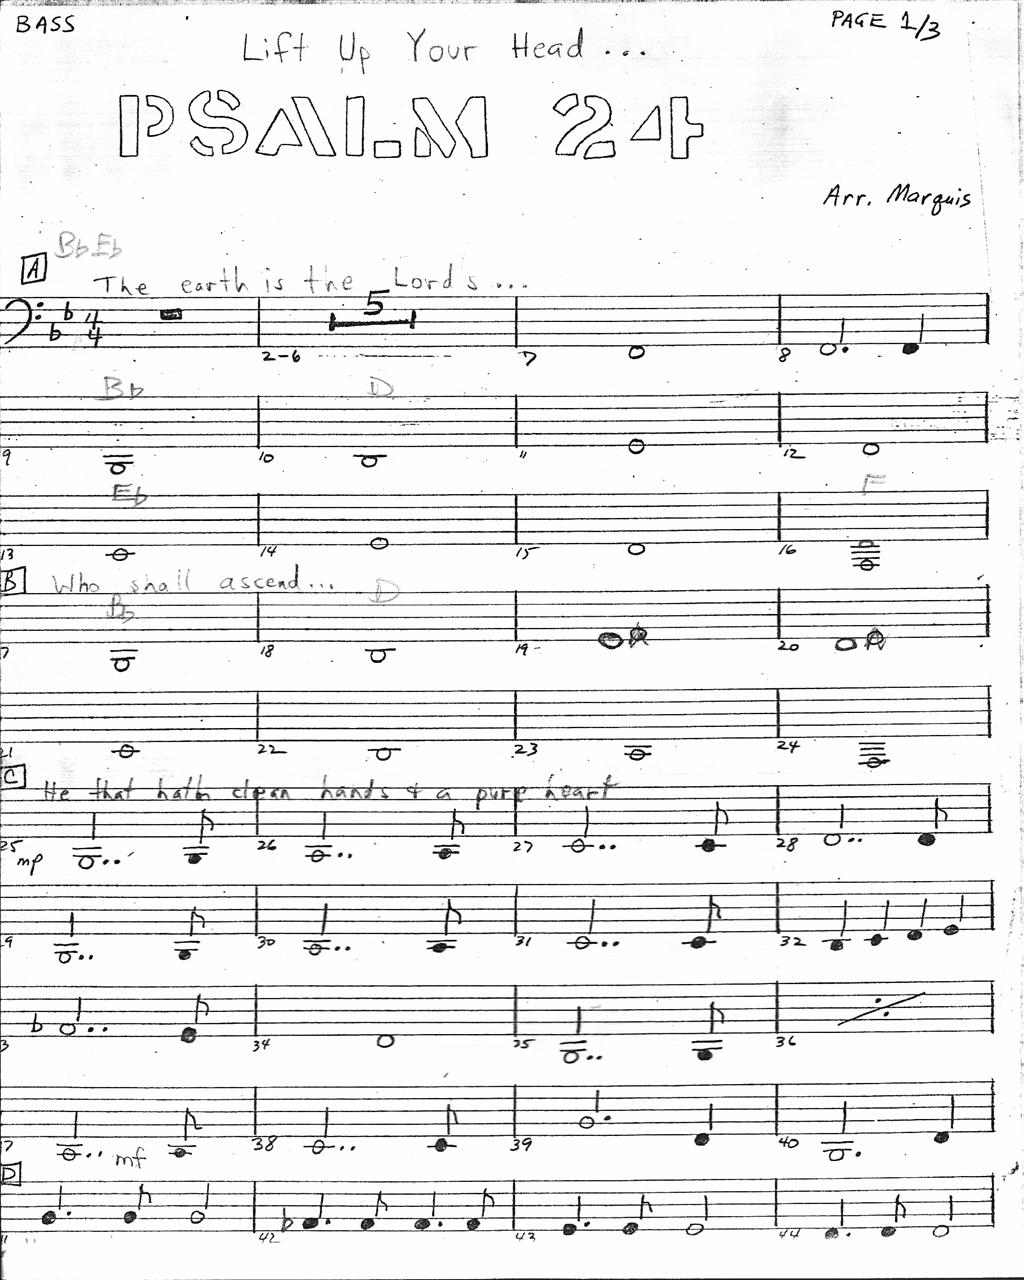 BASS
PAGE 1/3
Lift Up Your Head...
PSALM 24
Arr. Marquis
B♭ E♭
A
The earth is the Lords...
♭ ♭ 4 4
5
2-6 7 8
B♭ D
9 10 11 12
E♭ F
13 14 15 16
B Who shall ascend...
B♭ D
7 18 19 20
21 22 23 24
C He that hath clean hands & a pure heart
25 26 27 28
mp
9 30 31 32
♭
3 34 35 36
7 38 39 40
mf
D
♭
42 43 44